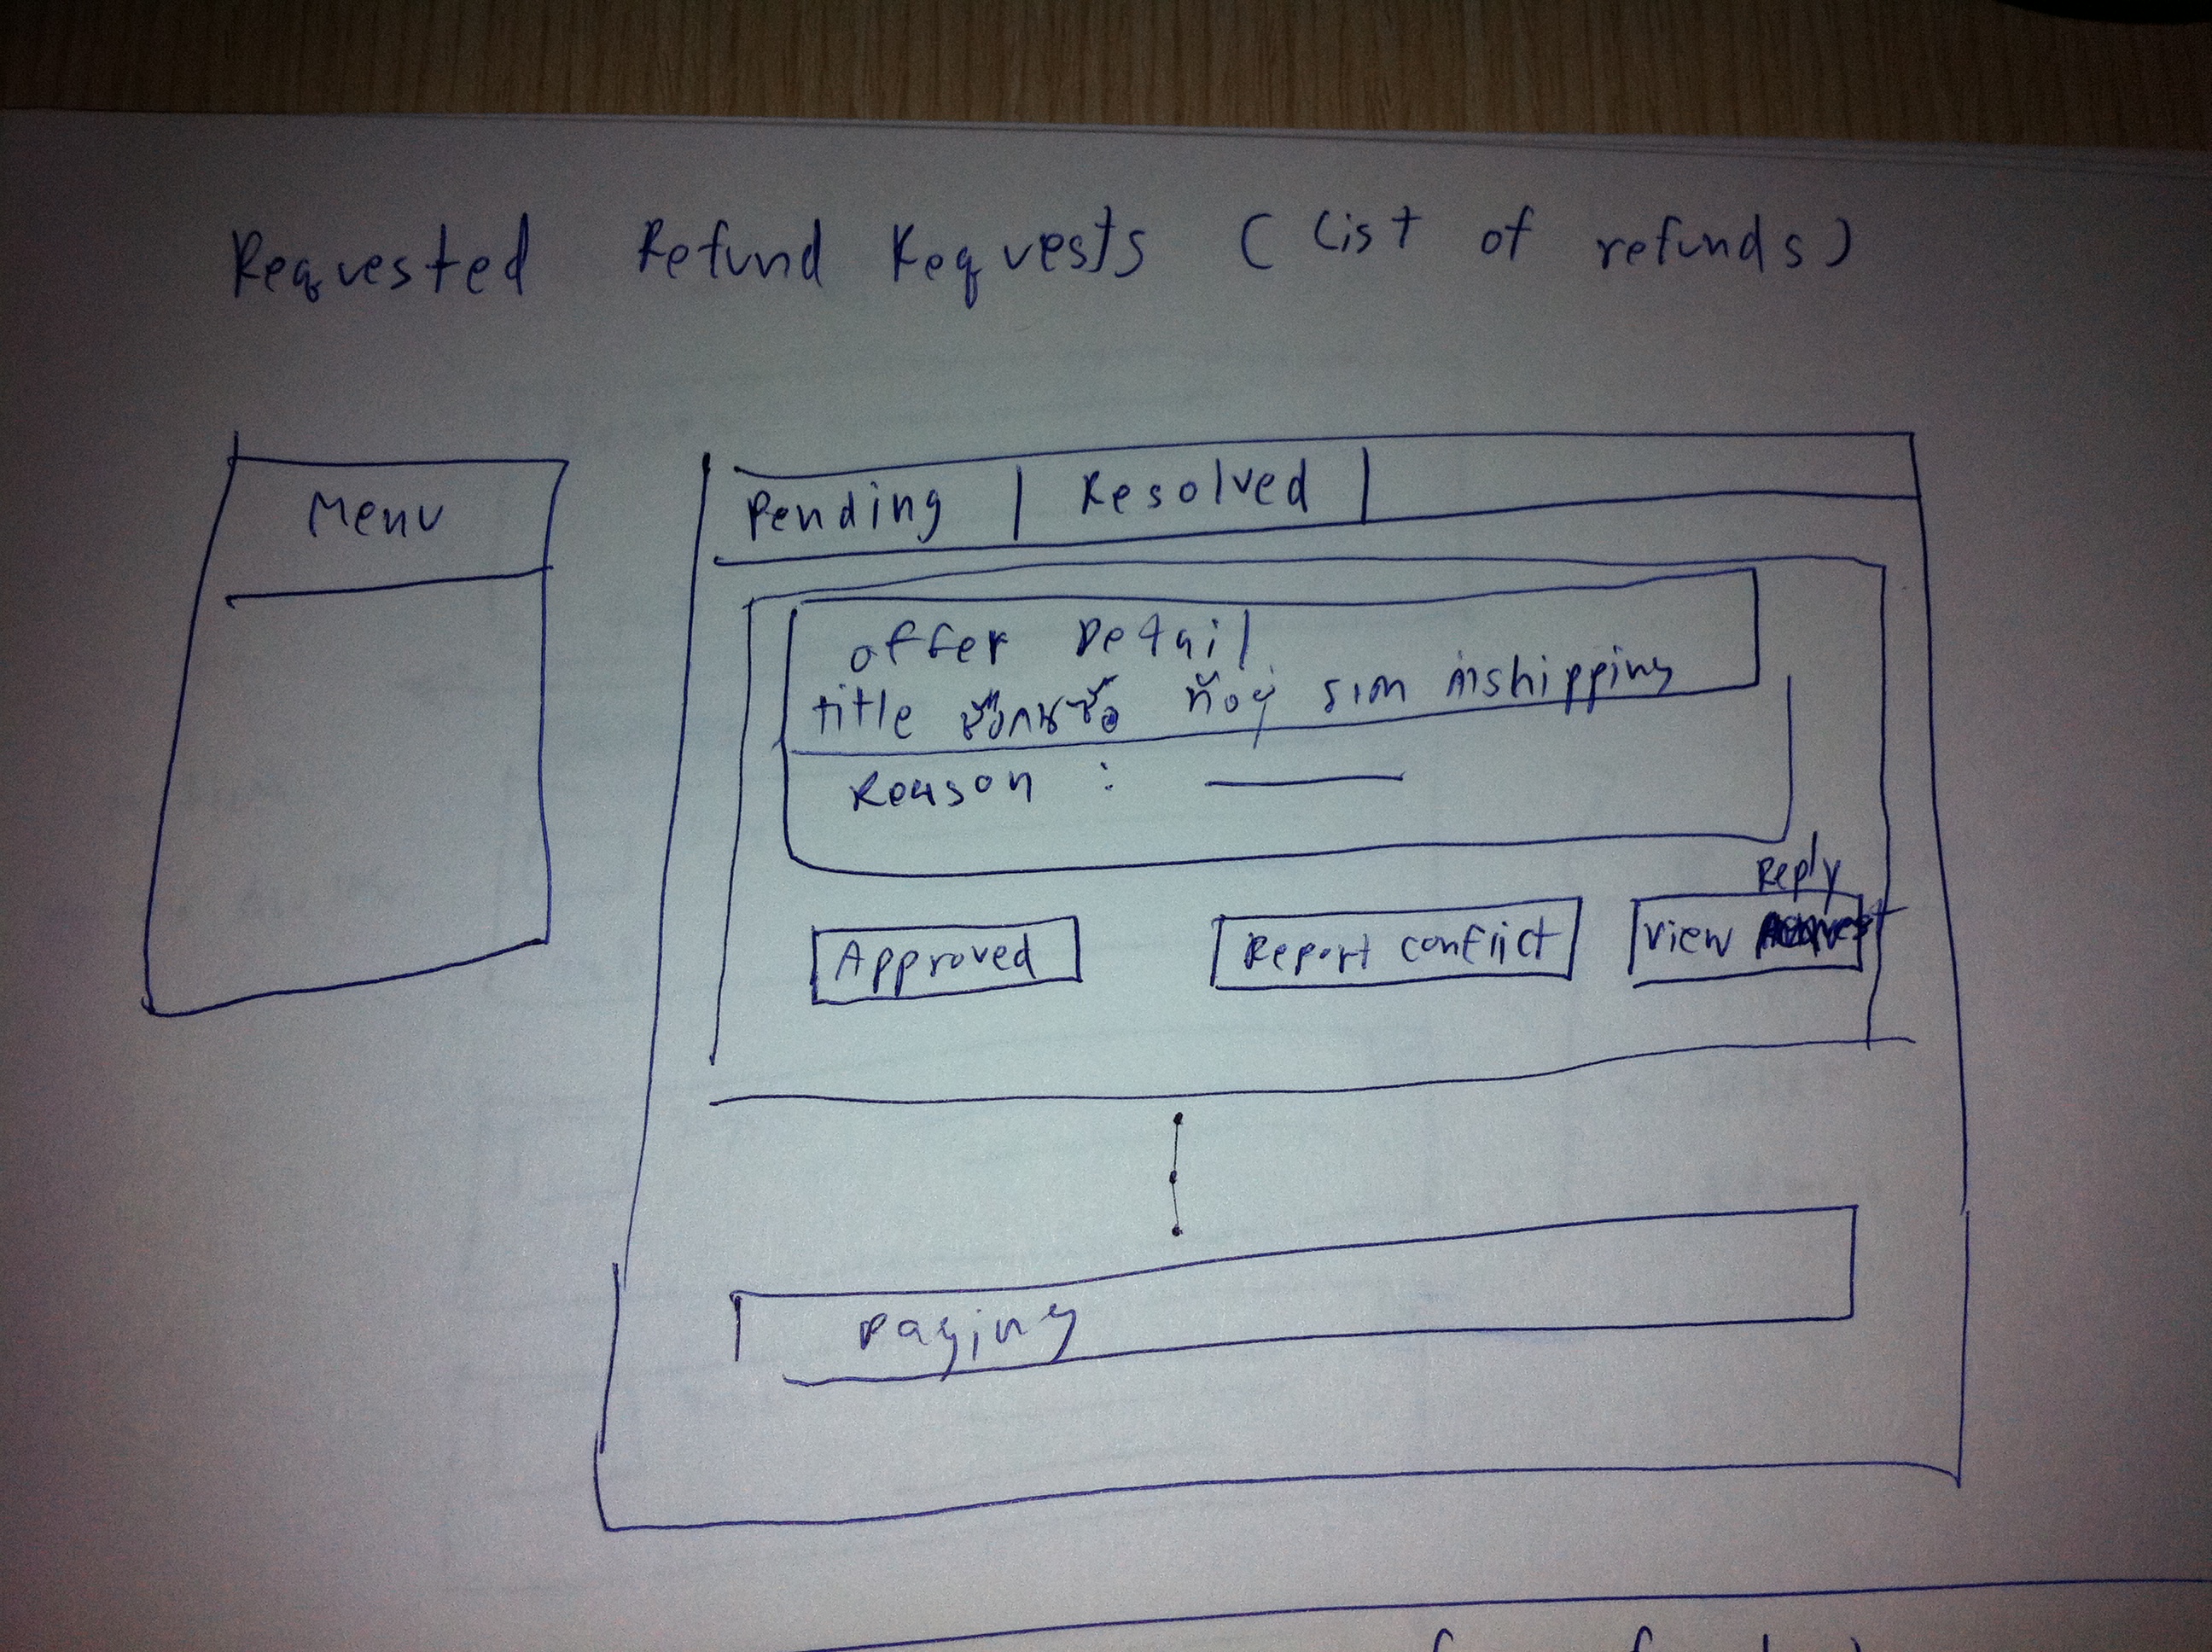 Requested Refund Requests (List of refunds)
Menu
Pending | Resolved |
offer Detail
title ชื่อคนซื้อ ที่อยู่ ราคา shipping
Reason :
Approved
Report confict
View Reply
Paging